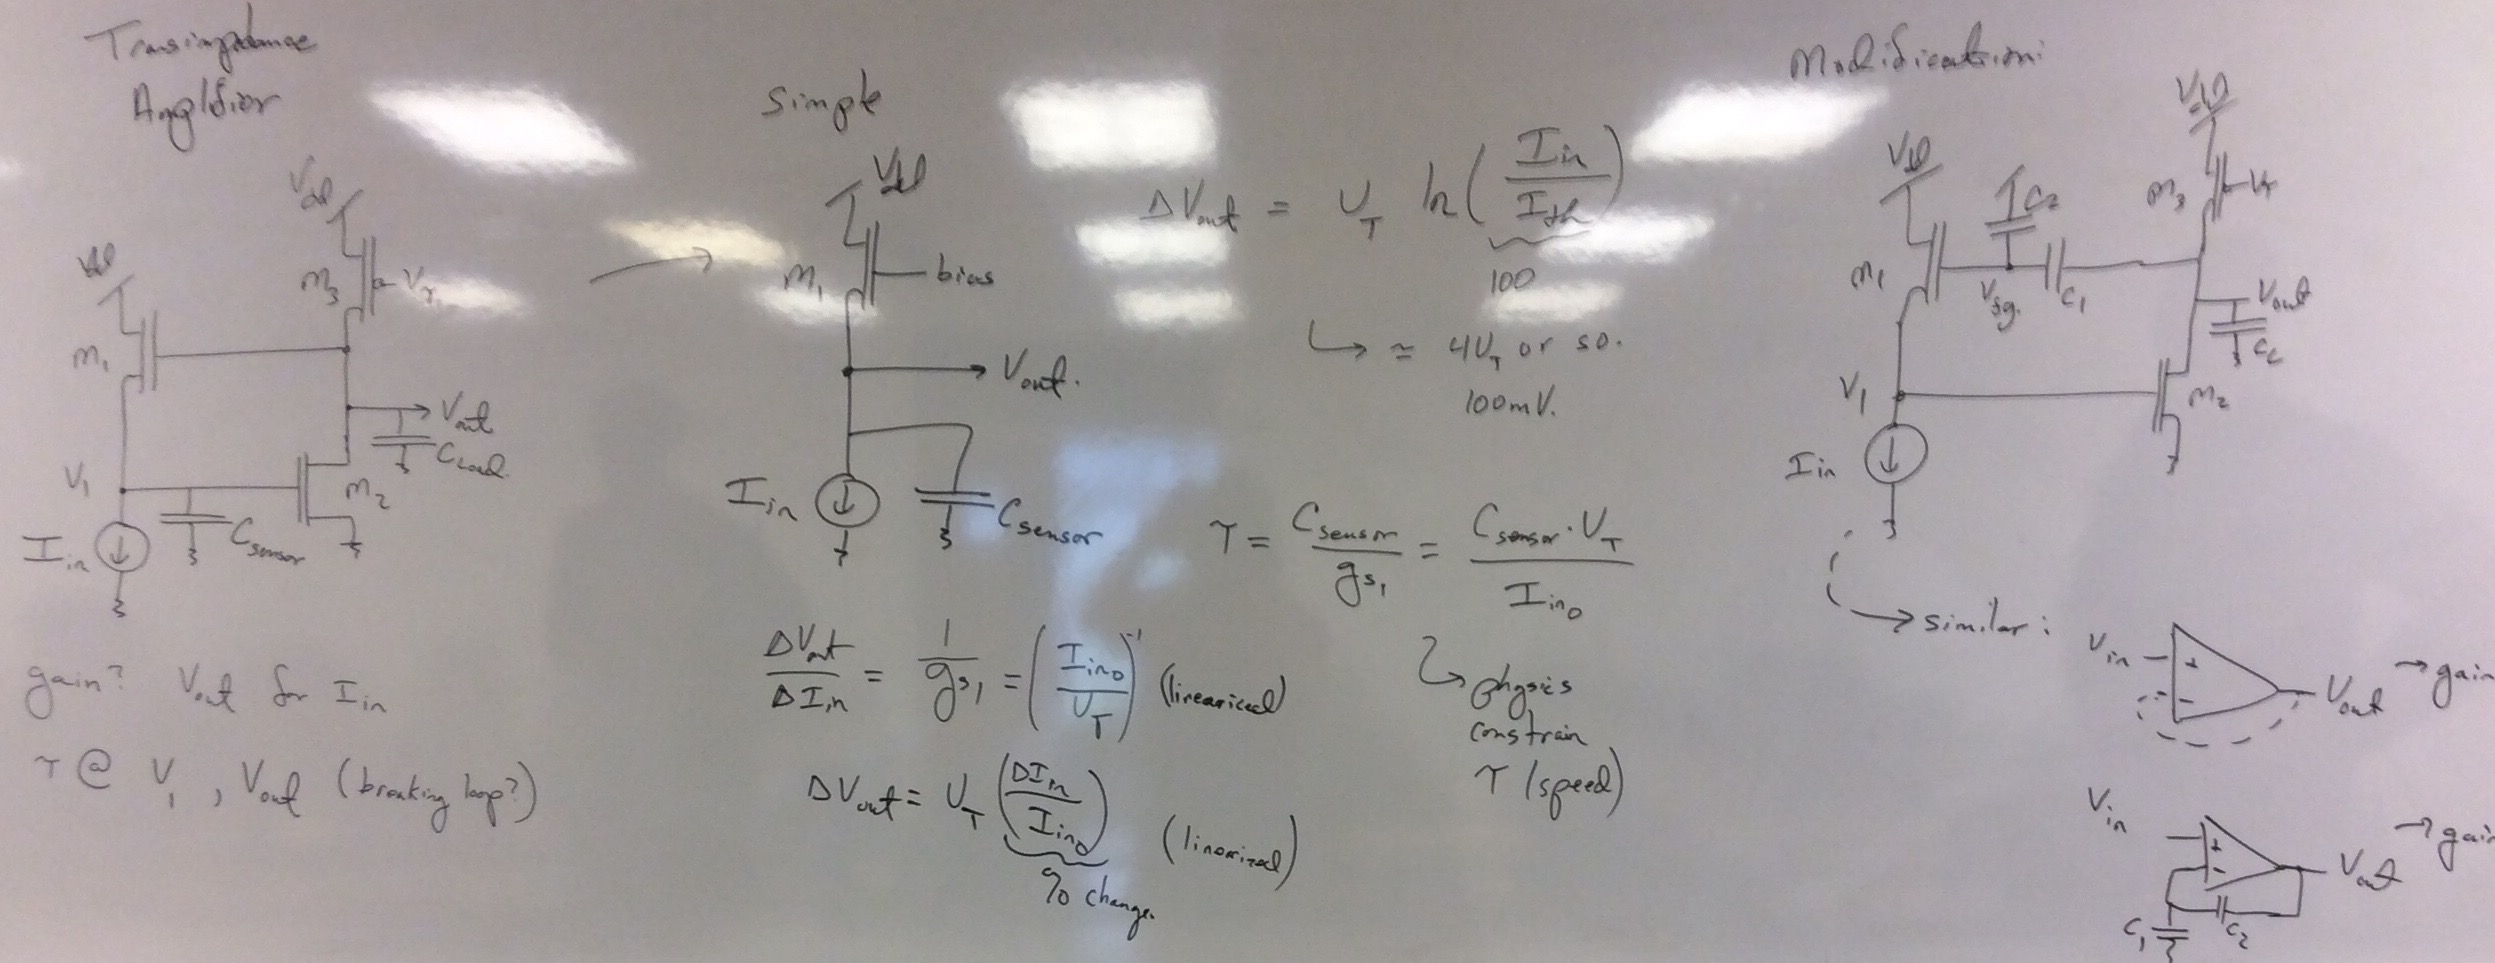 Transimpedance
Amplifier
Vdd
Vdd
M3
Vτ
M1
Vout
CLoad
V1
M2
Csensor
Iin
gain? Vout for Iin
τ @ V1, Vout (breaking loop?)
Simple
Vdd
M1
bias
Vout.
Iin
Csensor
ΔVout / ΔIin = 1 / gs1 = (Iino / UT)^-1 (linearized)
ΔVout = UT (ΔIin / Iino) (linearized)
% change.
ΔVout = UT ln(Iin / Ith)
100
↳ ≈ 4UT or so.
100mV.
τ = Csensor / gs1 = Csensor · UT / Iino
↳ physics
constrain
τ (speed)
Modification:
Vdd
Vdd
C2
M3
Vτ
M1
Vsg.
C1
Vout
CL
V1
M2
Iin
→ similar:
Vin
+
-
Vout → gain
Vin
+
-
Vout → gain
C1
C2